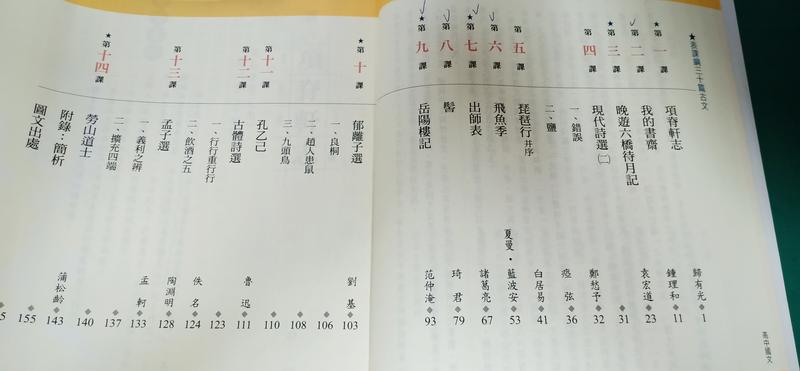 ★表課綱三十篇古文
★第一課 項脊軒志 歸有光◆1
第二課 我的書齋 鍾理和◆11
★第三課 晚遊六橋待月記 袁宏道◆23
第四課 現代詩選(二) ◆31
一、錯誤 鄭愁予◆32
二、鹽 瘂弦◆36
第五課 琵琶行并序 白居易◆41
第六課 飛魚季 夏曼・藍波安◆53
★第七課 出師表 諸葛亮◆67
第八課 髻 琦君◆79
★第九課 岳陽樓記 范仲淹◆93
高中國文
★第十課 郁離子選 劉基◆103
一、良桐 ◆106
二、趙人患鼠 ◆108
三、九頭鳥 ◆110
第十一課 孔乙己 魯迅◆111
第十二課 古體詩選 ◆123
一、行行重行行 佚名◆124
二、飲酒之五 陶淵明◆128
第十三課 孟子選 孟軻◆133
一、義利之辨 ◆137
二、擴充四端 ◆140
★第十四課 勞山道士 蒲松齡◆143
附錄：簡析 ◆155
圖文出處